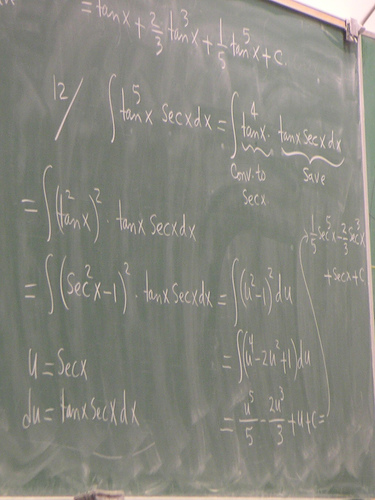 = tanx + 2/3 tan³x + 1/5 tan⁵x + C
12/ ∫ tan⁵x secx dx = ∫ tan⁴x · tanx secx dx
Conv. to secx
Save
= ∫ (tan²x)² · tanx secx dx
= ∫ (sec²x-1)² · tanx secx dx = ∫ (u²-1)² du
u = secx
du = tanx secx dx
= ∫ (u⁴-2u²+1) du
= u⁵/5 - 2u³/3 + u + C =
1/5 sec⁵x - 2/3 sec³x
+ secx + C